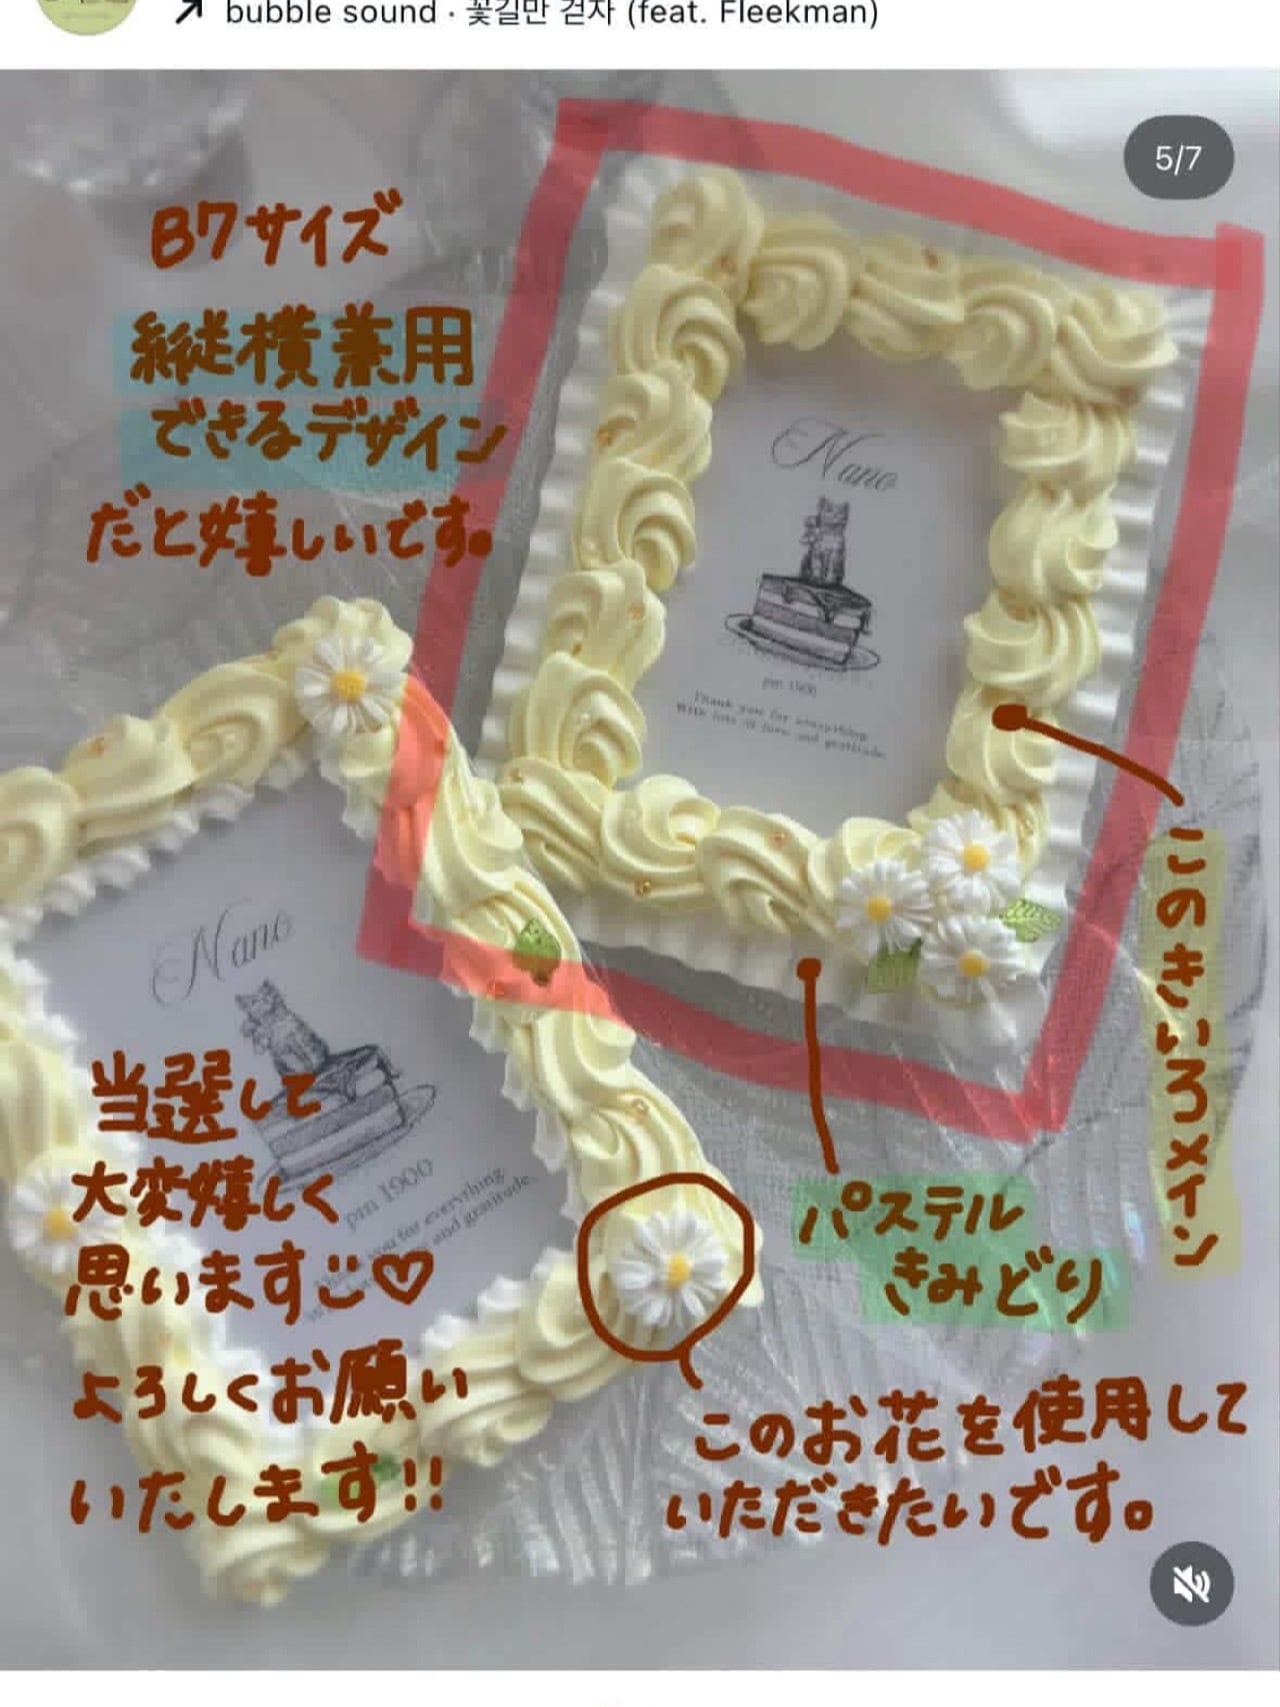 bubble sound · 꽃길만 걷자 (feat. Fleekman)
5/7
B7サイズ
縦横兼用
できるデザイン
だと嬉しいです。
Nano
pm 1900
Thank you for everything
With lots of love and gratitude
このきいろメイン
Nano
pm 1900
you for everything
and gratitude
当選して
大変嬉しく
思います♡
よろしくお願い
いたします!!
パステル
きみどり
このお花を使用して
いただきたいです。